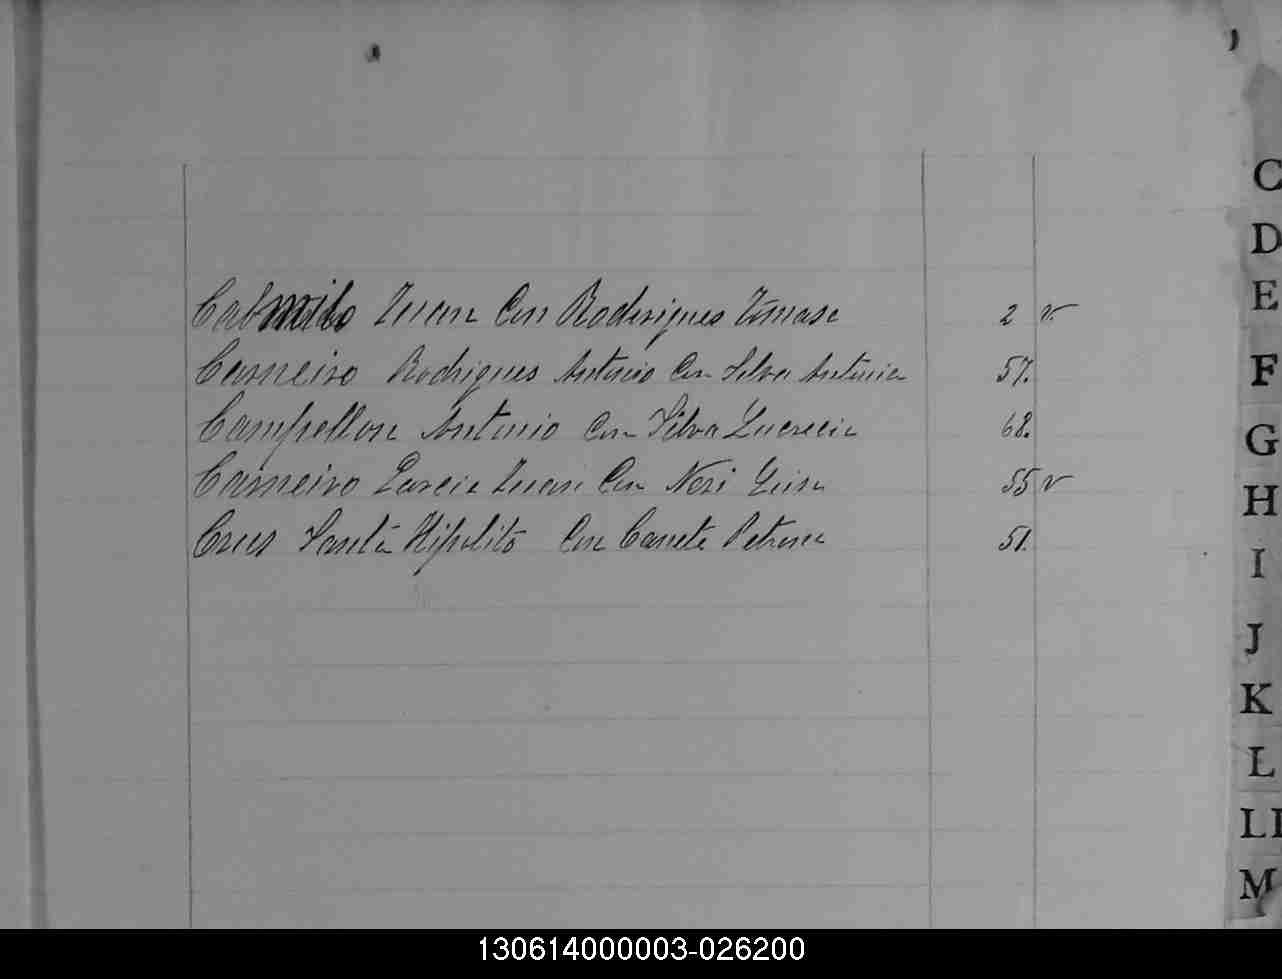 Juan Con Rodrigues Tomasa 2 v.
Carneiro Rodrigues Antonio Con Silva Antonia 57.
Campellon Antonio Con Silva Lucrecia 68.
Carneiro Garcia Juan Con Neri Luisa 55 v
Crus Santa Hipolito Con Canete Petrona 51.
C
D
E
F
G
H
I
J
K
L
Ll
M
130614000003-026200